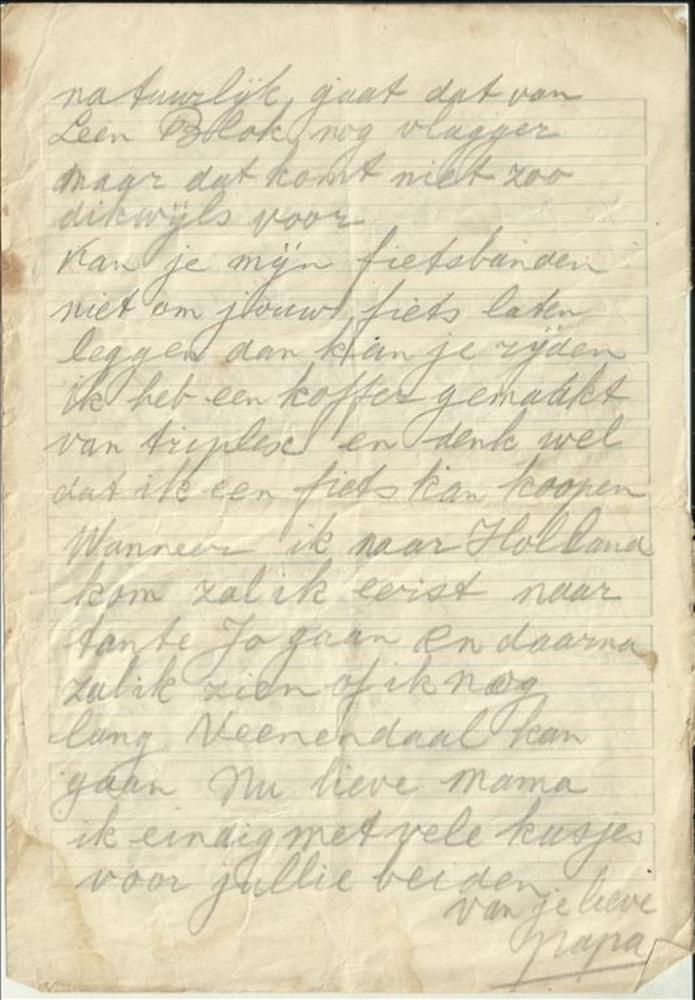 natuurlijk, gaat dat van
Leen Blok nog vlugger
maar dat komt niet zoo
dikwijls voor
Kan je mijn fietsbanden
niet om jouw fiets laten
leggen dan kan je rijden
ik heb een koffer gemaakt
van triplex en denk wel
dat ik een fiets kan koopen
Wanneer ik naar Holland
kom zal ik eerst naar
tante Jo gaan en daarna
zal ik zien of ik nog
lang Veenendaal kan
gaan Nu lieve mama
ik eindig met vele kusjes
voor jullie beiden
van je lieve
papa